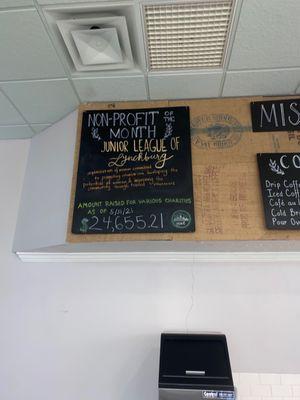 NON-PROFIT OF THE
MONTH
JUNIOR LEAGUE OF
Lynchburg
organization of women committed
to promoting volunteerism, developing the
potential of women & improving the
community through trained volunteers
AMOUNT RAISED FOR VARIOUS CHARITIES
AS OF 5/11/21
$24,655.21
MIS
CO
Drip Coff
Iced Coff
Café au
Cold Bre
Pour Ov